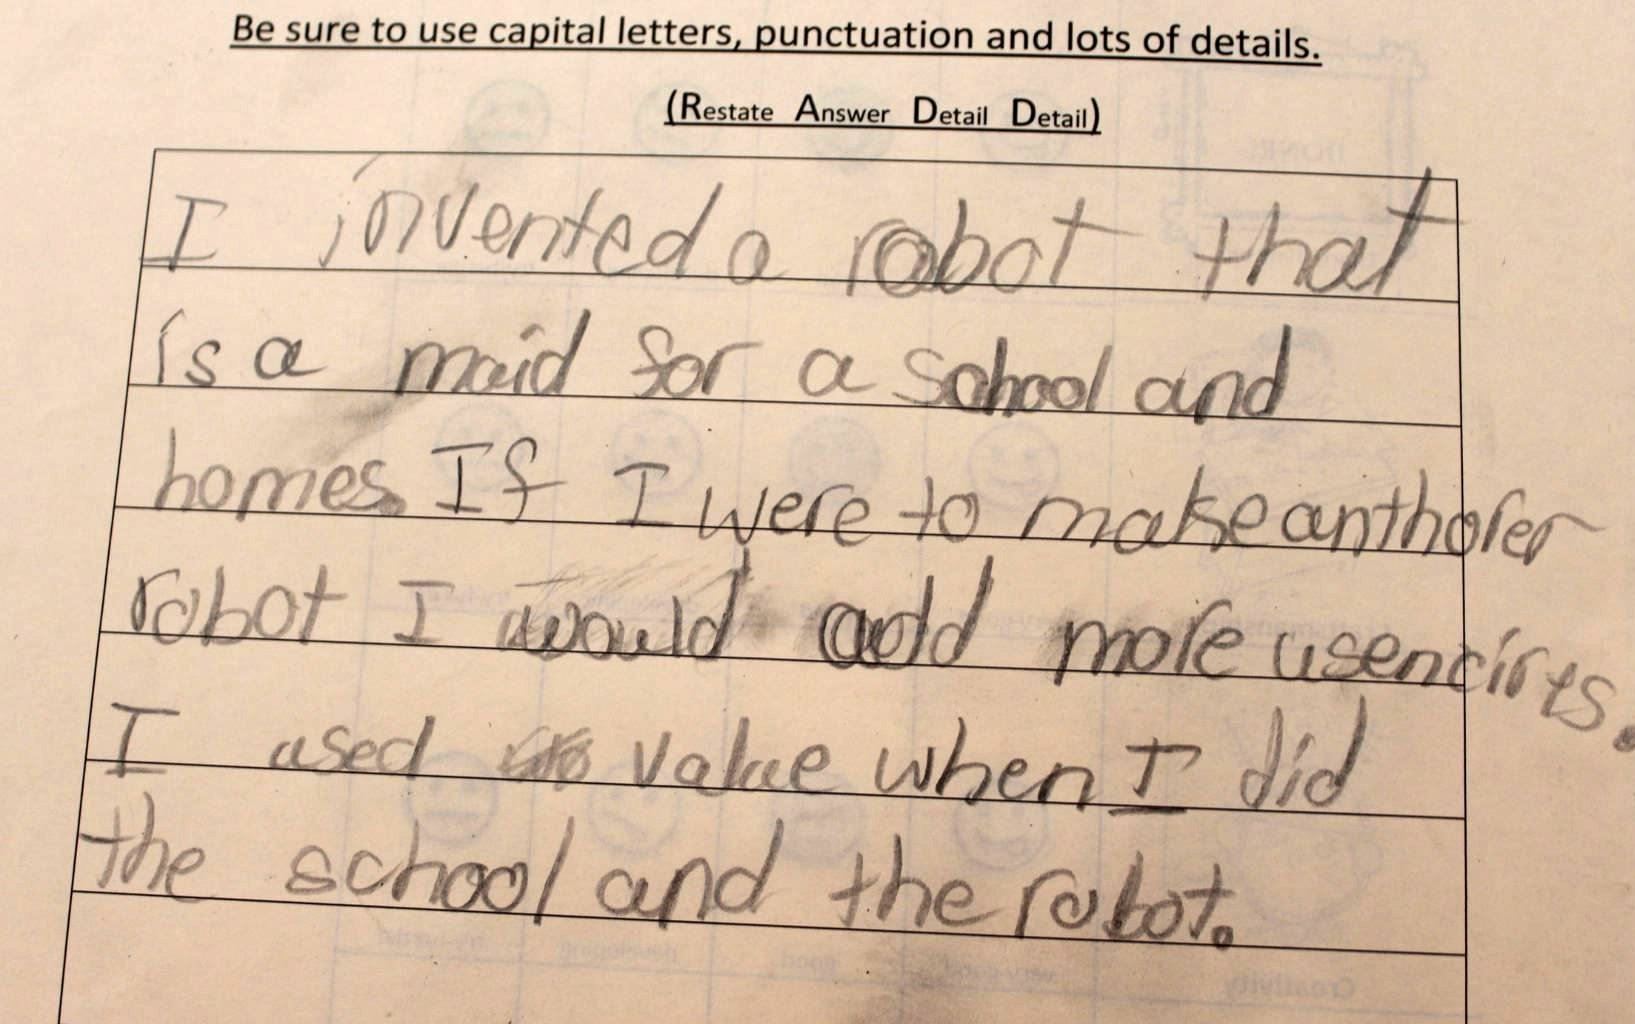 Be sure to use capital letters, punctuation and lots of details.
(Restate Answer Detail Detail)
I invented a robot that
is a maid for a school and
homes. If I were to make antholer
robot I would add more usencirts.
I used value when I did
the school and the robot.